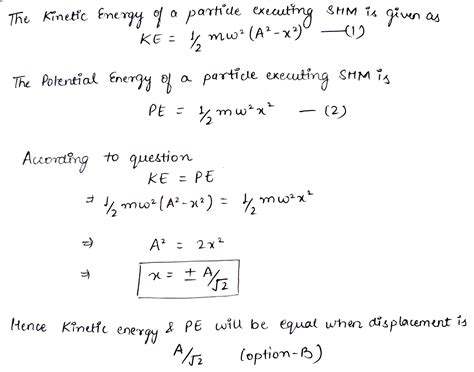 The Kinetic Energy of a particle executing SHM is given as
KE = 1/2 mω² (A² - x²) —(1)
The Potential Energy of a particle executing SHM is
PE = 1/2 mω²x² — (2)
According to question
KE = PE
⇒ 1/2 mω² (A² - x²) = 1/2 mω²x²
⇒ A² = 2x²
⇒ x = ± A/√2
Hence Kinetic energy & PE will be equal when displacement is
A/√2 (option-B)